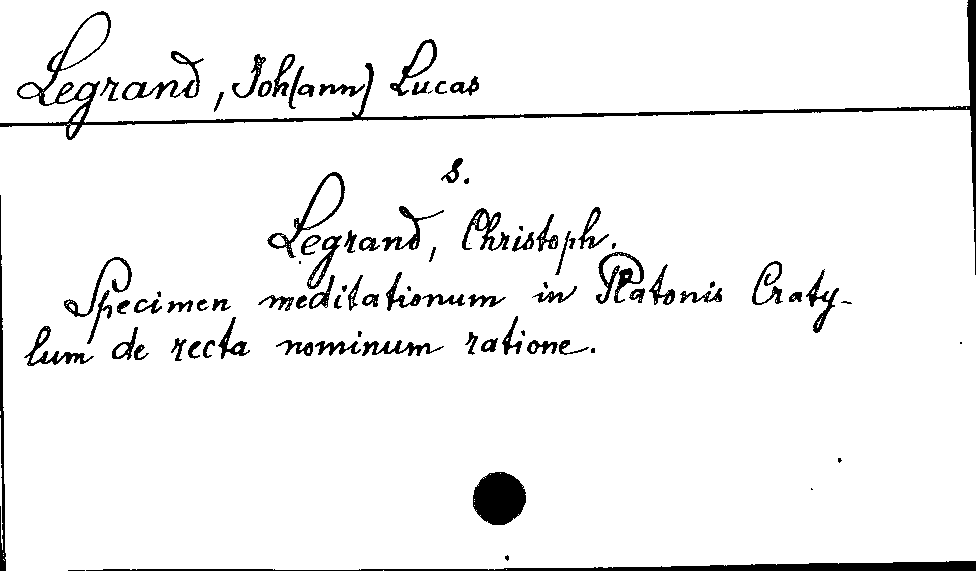 Legrand, Joh(ann) Lucas
s.
Legrand, Christoph.
Specimen meditationum in Platonis Craty-
lum de recta nominum ratione.